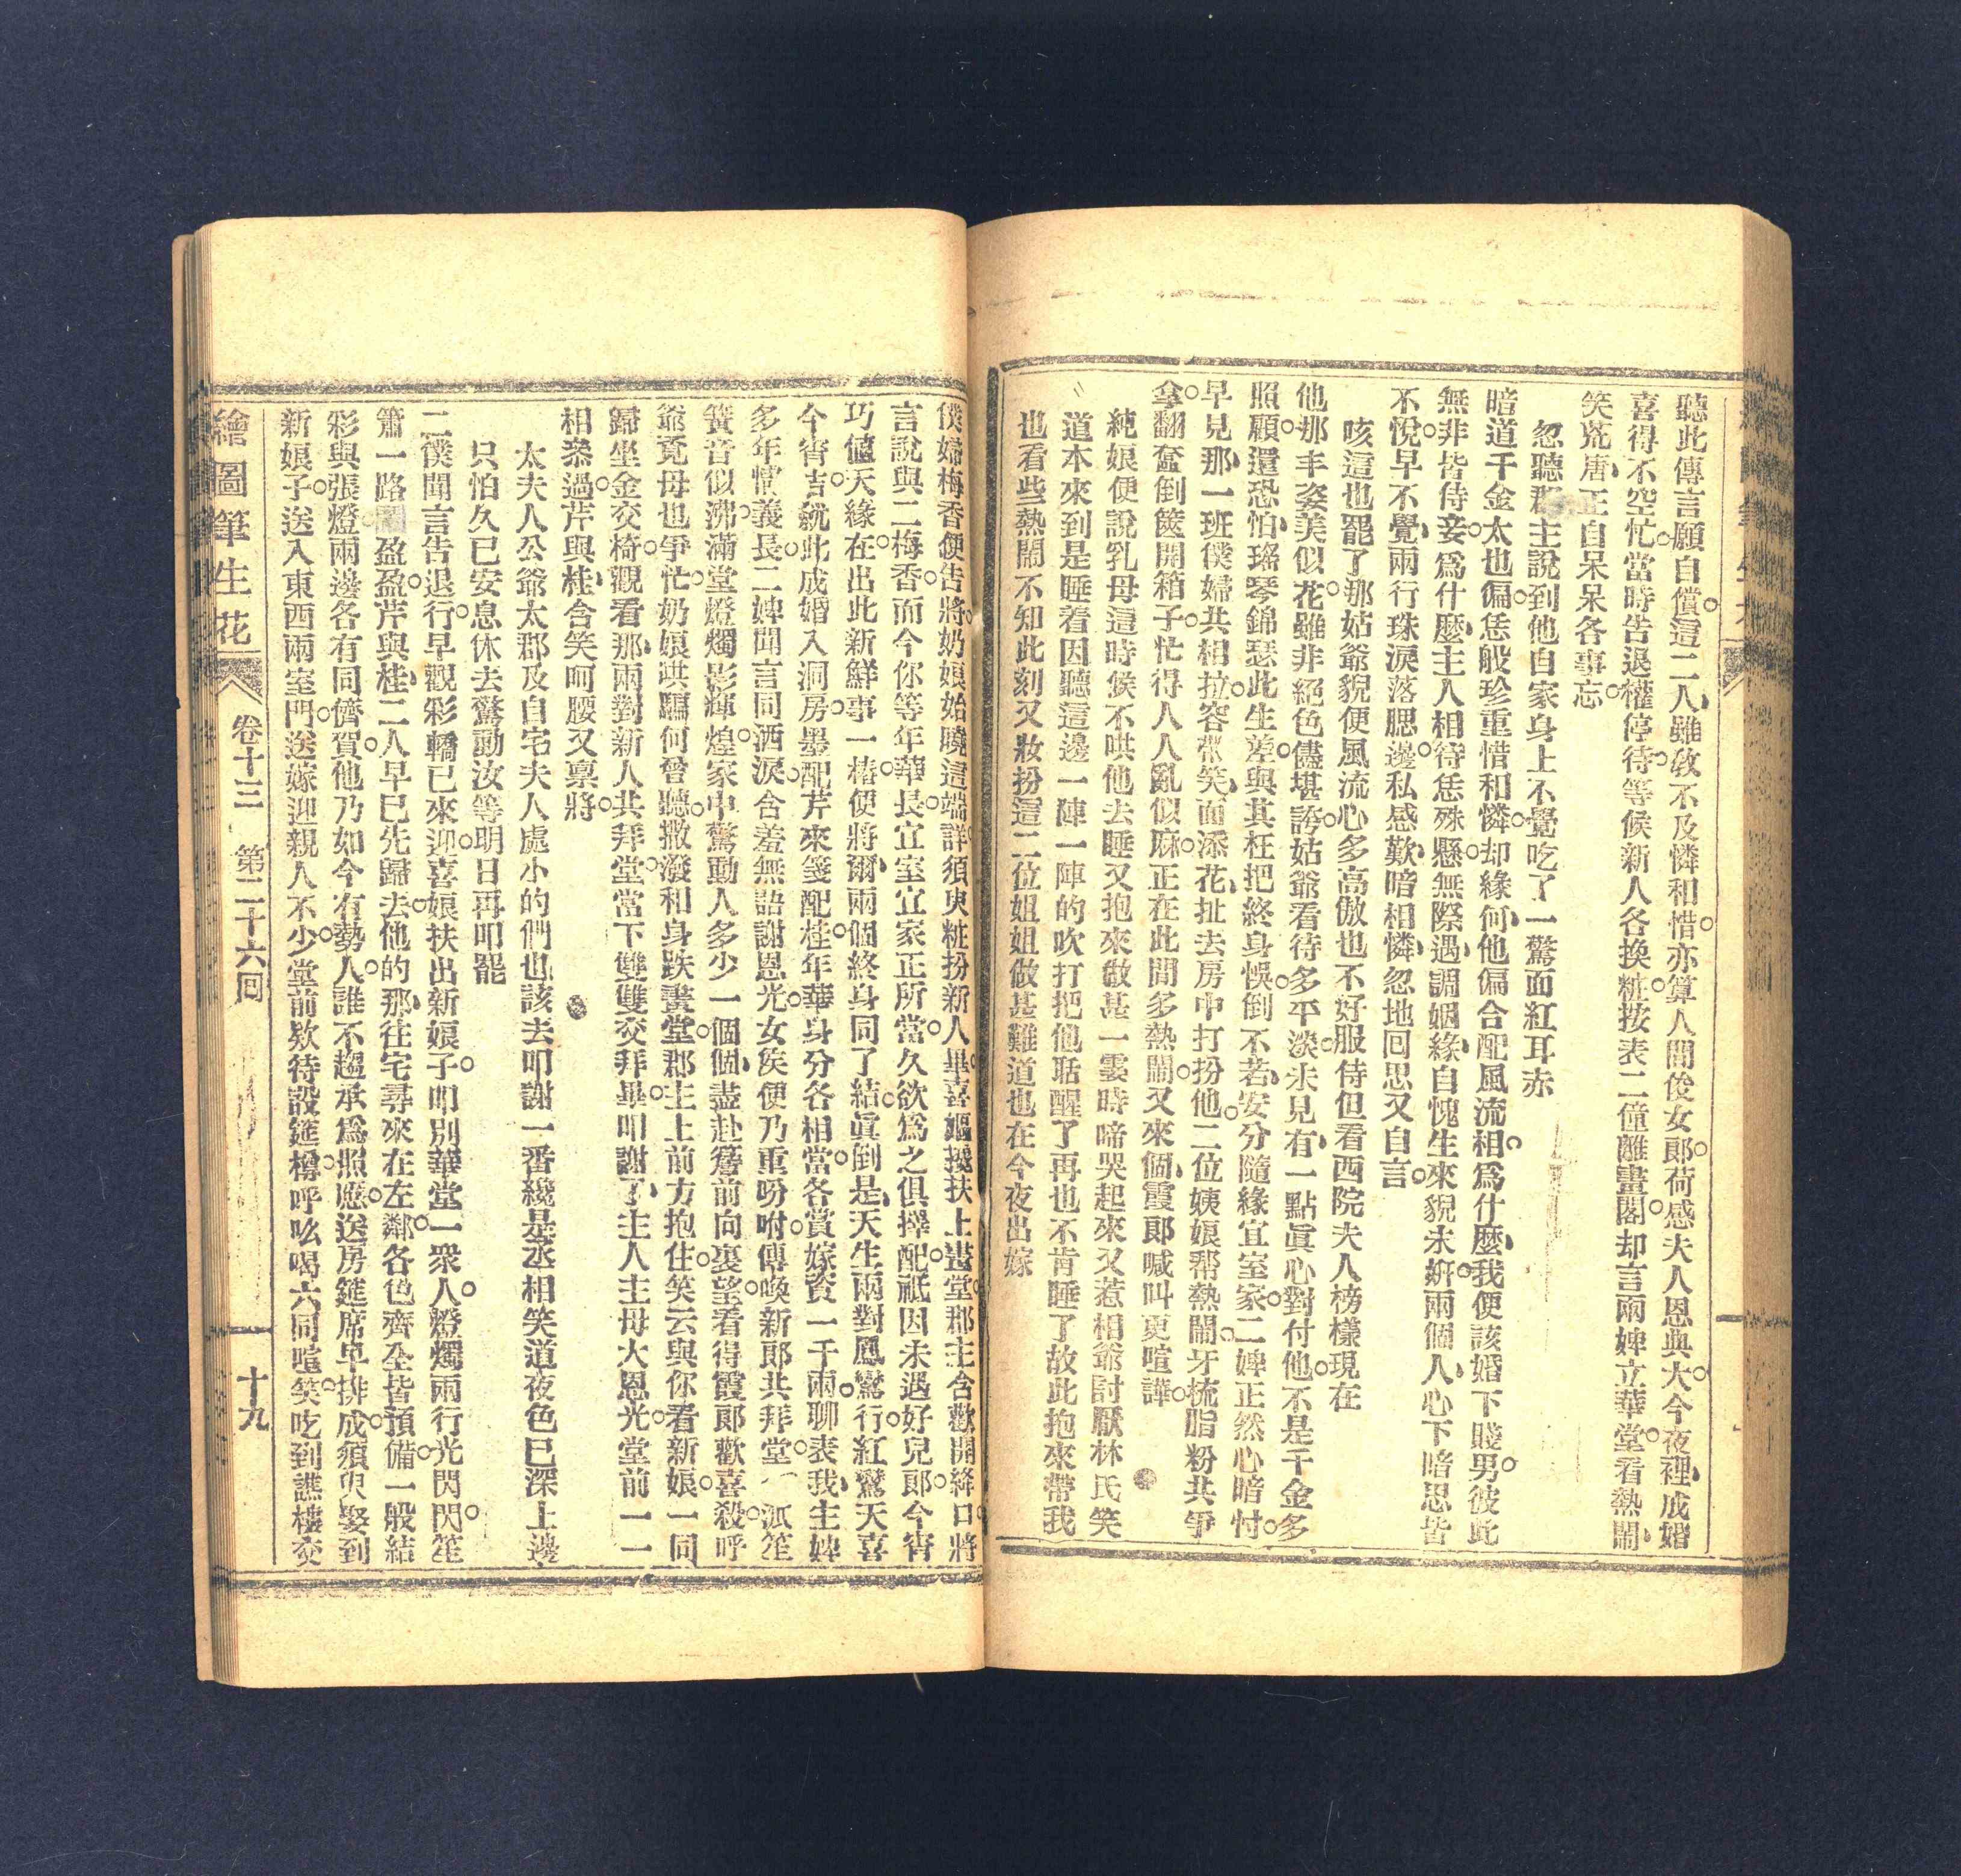 聽此傳言願自償。這二人、雖教不及憐和惜。亦算人間俊女郎。荷感夫人恩典大。今夜裡、成婚
喜得不空忙。當時告退權停待。等候新人各換粧。按表二僮離畫閣。却言兩婢立華堂。看熱鬧、
笑唐、正自呆呆各事忘。
忽聽郡主說到他自家身上不覺吃了一驚面紅耳赤
暗道千金太也偏。恁般珍重惜和憐。却緣何、他偏合配風流相。爲什麼、我便該婚下賤男。彼此
無非皆侍妾。爲什麼、主人相待恁殊懸。無際遇、調姻緣、自愧生來貌未妍。兩個人、心下暗思皆
不悅。早不覺、兩行珠淚落腮邊。私感歎、暗相憐、忽地回思又自言。
咳這也罷了那姑爺貌便風流心多高傲也不好服侍但看西院夫人榜樣現在
他那丰姿美似花。雖非絕色儘堪誇。姑爺看待多平淡。未見有、一點眞心對付他。不是千金多
照顧。還恐怕、瑤琴錦瑟此生差。與其枉把終身悞。倒不若、安分隨緣宜室家。二婢正然心暗忖。
早見那、一班僕婦共相拉。容帶笑、面添花、扯去房中打扮他。二位姨娘帮熱鬧。牙梳脂粉共爭
拿。翻奩倒篋開箱子。忙得人人亂似麻。正在此間多熱鬧。又來個、霞郎喊叫更喧譁。
純娘便說乳母這時候不哄他去睡又抱來做甚一霎時啼哭起來又惹相爺討厭林氏笑
道本來到是睡着因聽這邊一陣一陣的吹打把他聒醒了再也不肯睡了故此抱來帶我
也看些熱鬧不知此刻又妝扮這二位姐姐做甚難道也在今夜出嫁
僕婦梅香便告將。奶娘始曉這端詳。須臾粧扮新人畢。喜嫗攙扶上畫堂。郡主含歡開絳口。將
言說與二梅香。而今你等年華長。宜室宜家正所當。久欲爲之俱擇配。祇因未遇好兒郎。今宵
巧値天緣在。出此新鮮事一樁。便將爾、兩個終身同了結。眞倒是、天生兩對鳳鸞行。紅鸞天喜
今宵吉。就此成婚入洞房。墨配芹來箋配桂。年華身分各相當。各賞嫁資一千兩。聊表我、主婢
多年情義長。二婢聞言同洒淚。含羞無語謝恩光。女矦便乃重吩咐。傳喚新郎共拜堂。一派笙
簧音似沸。滿堂燈燭影輝煌。家中驚動人多少。一個個、盡赴簷前向裏望。看得霞郎歡喜殺。呼
爺覓母也爭忙。奶娘哄騙何曾聽。撒潑和身跌畫堂。郡主上前方抱住。笑云與你看新娘。一同
歸坐金交椅。觀看那、兩對新人共拜堂。當下雙雙交拜畢。叩謝了、主人主母大恩光。堂前一一
相叅過。芹與桂、含笑呵腰又禀將。
太夫人公爺太郡及自宅夫人處小的們也該去叩謝一番纔是丞相笑道夜色已深上邊
只怕久已安息休去驚動汝等明日再叩罷
二僕聞言告退行。早觀彩轎已來迎。喜娘扶出新娘子。叩別華堂一衆人。燈燭兩行光閃閃。笙
簫一路盈盈。芹與桂、二人早已先歸去。他的那、往宅尋來在左鄰。各色齊全皆預備。一般結
彩與張燈。兩邊各有同儕賀。他乃如今有勢人。誰不趨承爲照應。送房筵席早排成。須臾娶到
新娘子。送入東西兩室門。送嫁迎親人不少。堂前欵待設筵樽。呼吆喝六同喧笑。吃到譙樓交
繪圖筆生花
卷十三 第二十六回
十九